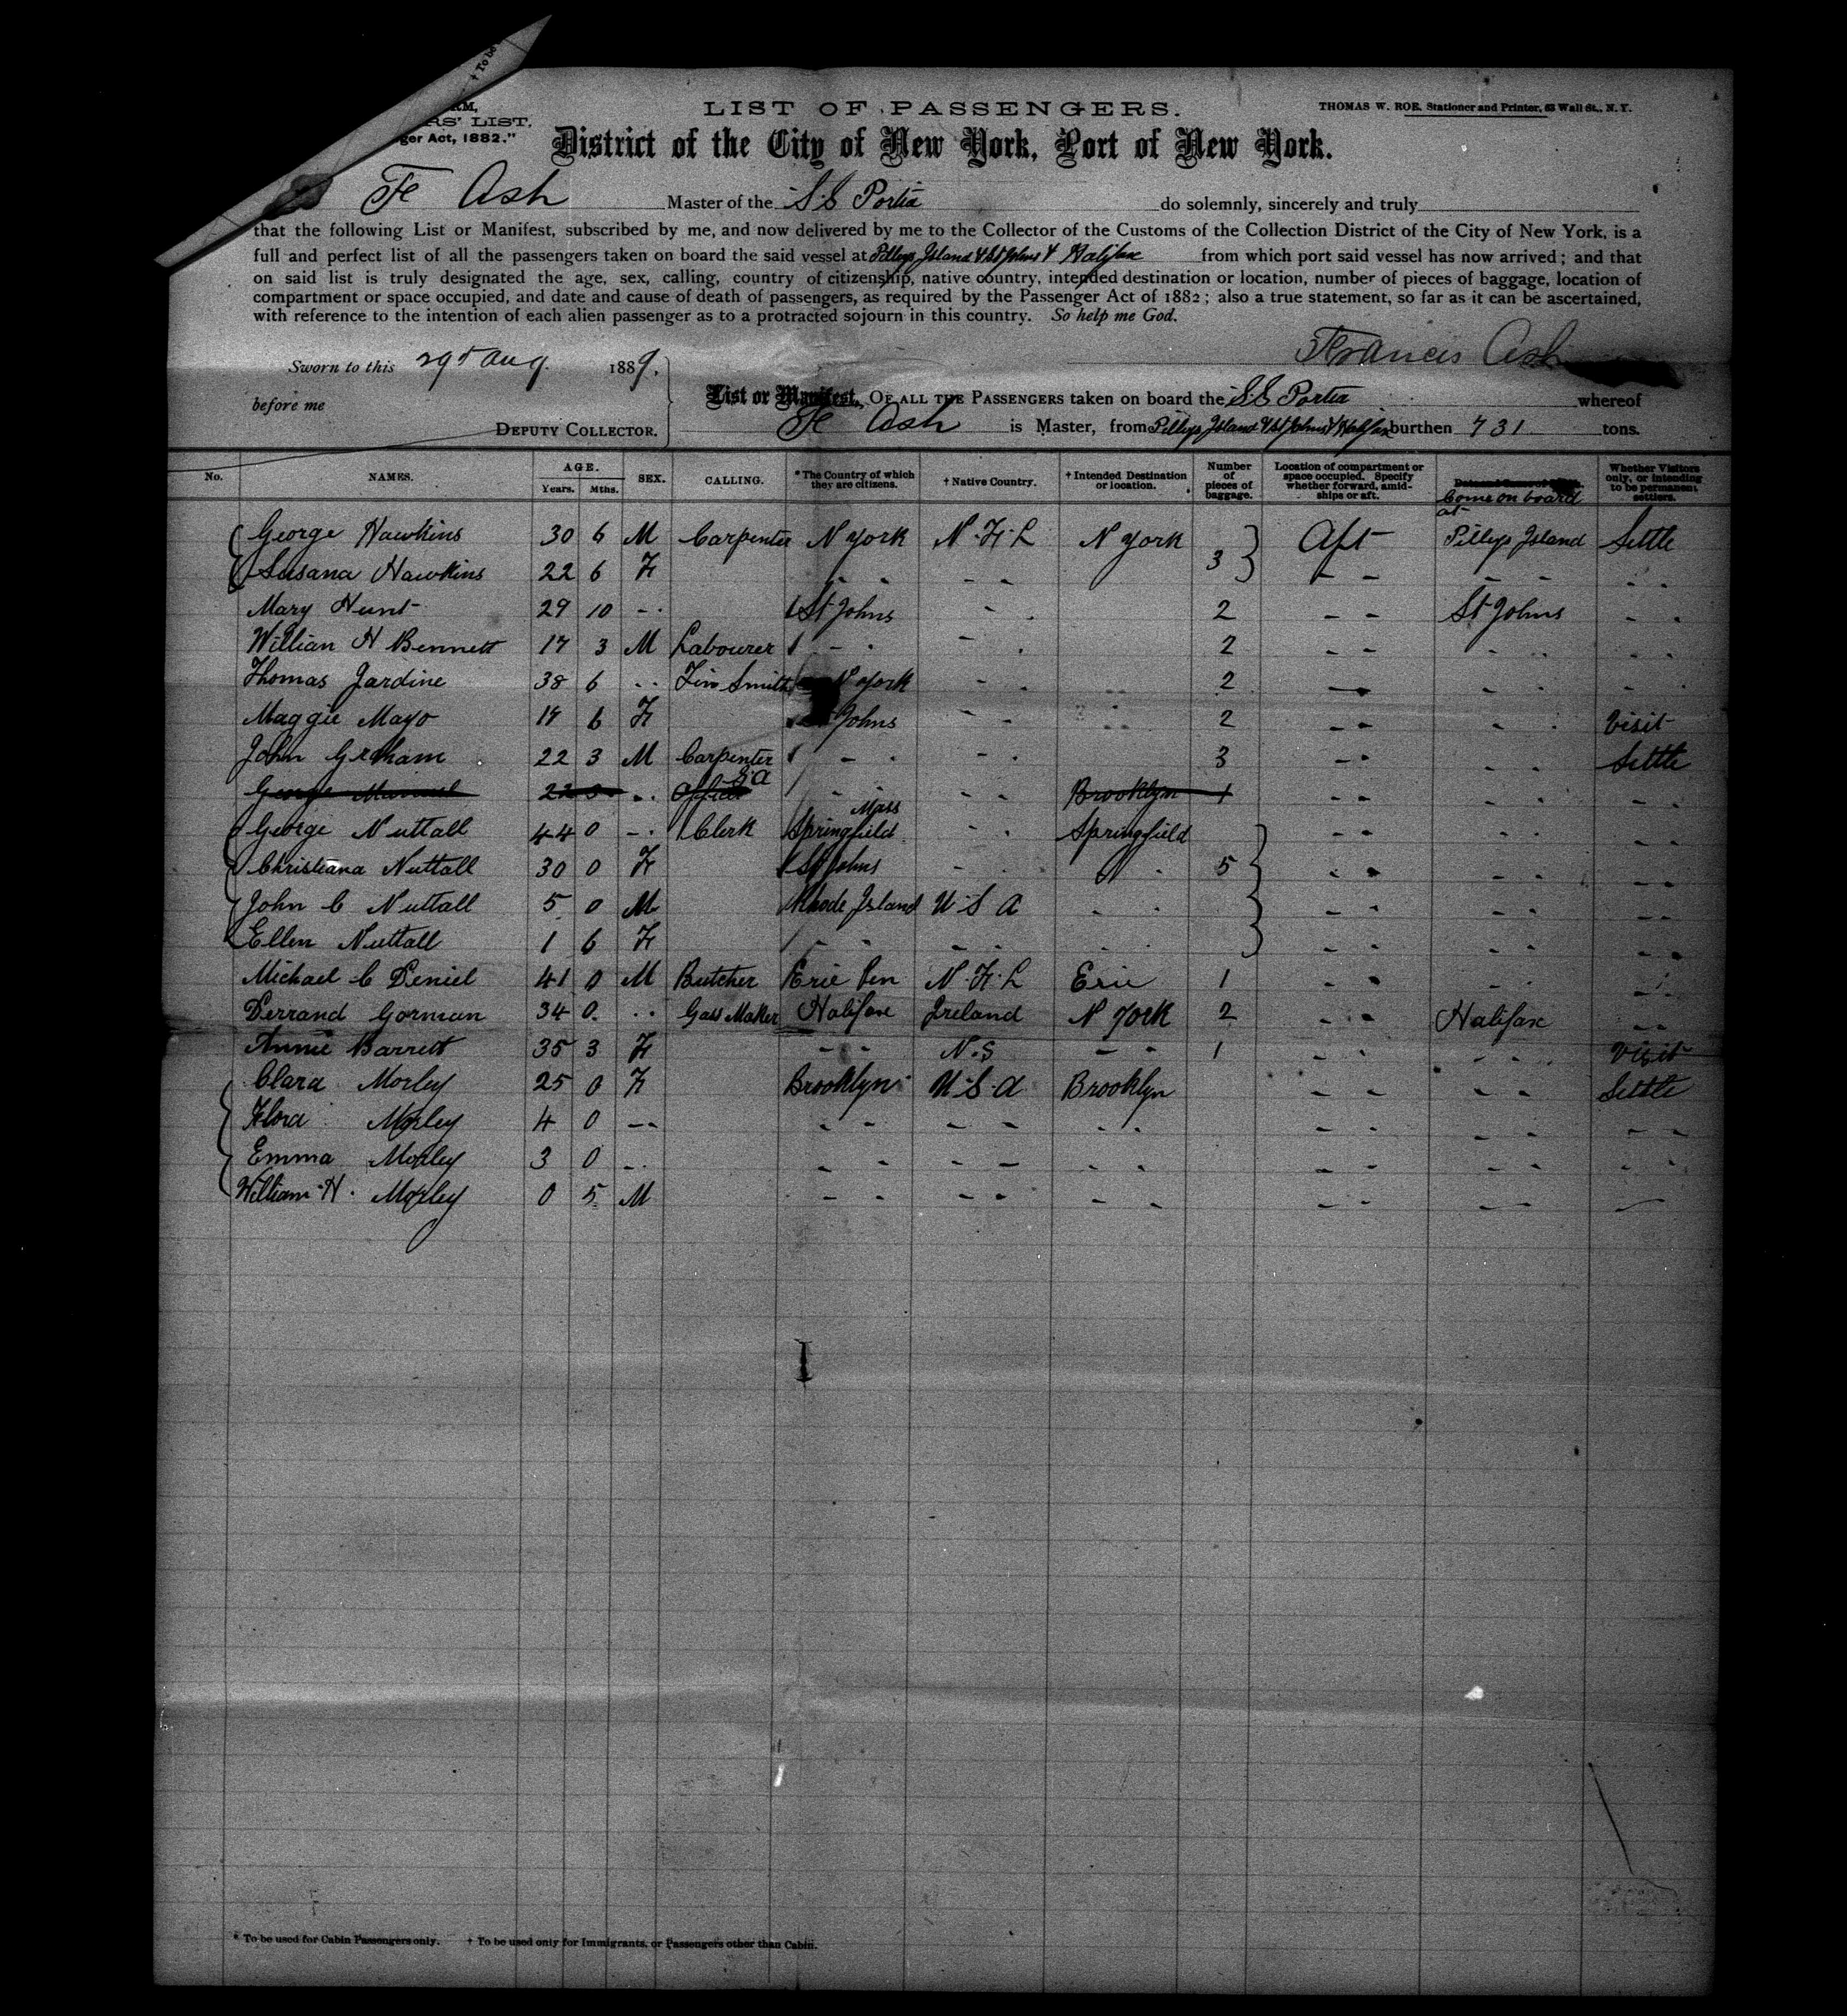 † To be
RM,
RS' LIST.
ger Act, 1882."
LIST OF PASSENGERS.
THOMAS W. ROE, Stationer and Printer, 63 Wall St., N. Y.
District of the City of New York, Port of New York.
Fr Ash Master of the S.S Portia do solemnly, sincerely and truly
that the following List or Manifest, subscribed by me, and now delivered by me to the Collector of the Customs of the Collection District of the City of New York, is a
full and perfect list of all the passengers taken on board the said vessel at Pilleys Island & St Johns & Halifax from which port said vessel has now arrived; and that
on said list is truly designated the age, sex, calling, country of citizenship, native country, intended destination or location, number of pieces of baggage, location of
compartment or space occupied, and date and cause of death of passengers, as required by the Passenger Act of 1882; also a true statement, so far as it can be ascertained,
with reference to the intention of each alien passenger as to a protracted sojourn in this country. So help me God.
Francis Ash
Sworn to this 29 Aug. 1889.
before me
DEPUTY COLLECTOR.
List or Manifest, OF ALL THE PASSENGERS taken on board the S.S Portia whereof
Fr Ash is Master, from Pilleys Island & St Johns & Halifax burthen 731 tons.
No. NAMES. AGE. Years. Mths. SEX. CALLING. *The Country of which they are citizens. † Native Country. † Intended Destination or location. Number of pieces of baggage. Location of compartment or space occupied. Specify whether forward, amidships or aft. Come on board at Whether Visitors only, or intending to be permanent settlers.
George Hawkins 30 6 M Carpenter N York N.F.L N York 3 Aft Pilleys Island Settle
Susana Hawkins 22 6 F - - - - - - - - - -
Mary Hunt 29 10 - . St Johns - . 2 - - St Johns - .
William H Bennett 17 3 M Labourer - . - . 2 - - - . - .
Thomas Jardine 38 6 - . Tin Smith N York - . 2 - - - . - .
Maggie Mayo 17 6 F St Johns - . 2 - - - . Visit
John Graham 22 3 M Carpenter - . - . 3 - - - . Settle
George 22 - . - . - . Brooklyn 1 - - - . - -
George Nuttall 44 0 - . Clerk Springfield Mass - . Springfield - - - . - -
Christiana Nuttall 30 0 F St Johns - . 5 - - - - - -
John C Nuttall 5 0 M Rhode Island U.S A - . - - - - - -
Ellen Nuttall 1 6 F - - - - - . - - - - - -
Michael C 41 0 M Butcher Erie Pen N.F.L Erie 1 - - - - - -
Gorman 34 0 - . Gass Maker Halifax Ireland N York 2 - - Halifax - -
Annie Barrett 35 3 F - - N.S - - 1 - - - - Visit
Clara Morley 25 0 F Brooklyn U.S.A Brooklyn - - - - Settle
Flora Morley 4 0 - - - - - - - - - - - - - -
Emma Morley 3 0 - . - - - - - - - - - - - -
William H. Morley 0 5 M - - - - - - - - - - -
* To be used for Cabin Passengers only. † To be used only for Immigrants, or Passengers other than Cabin.